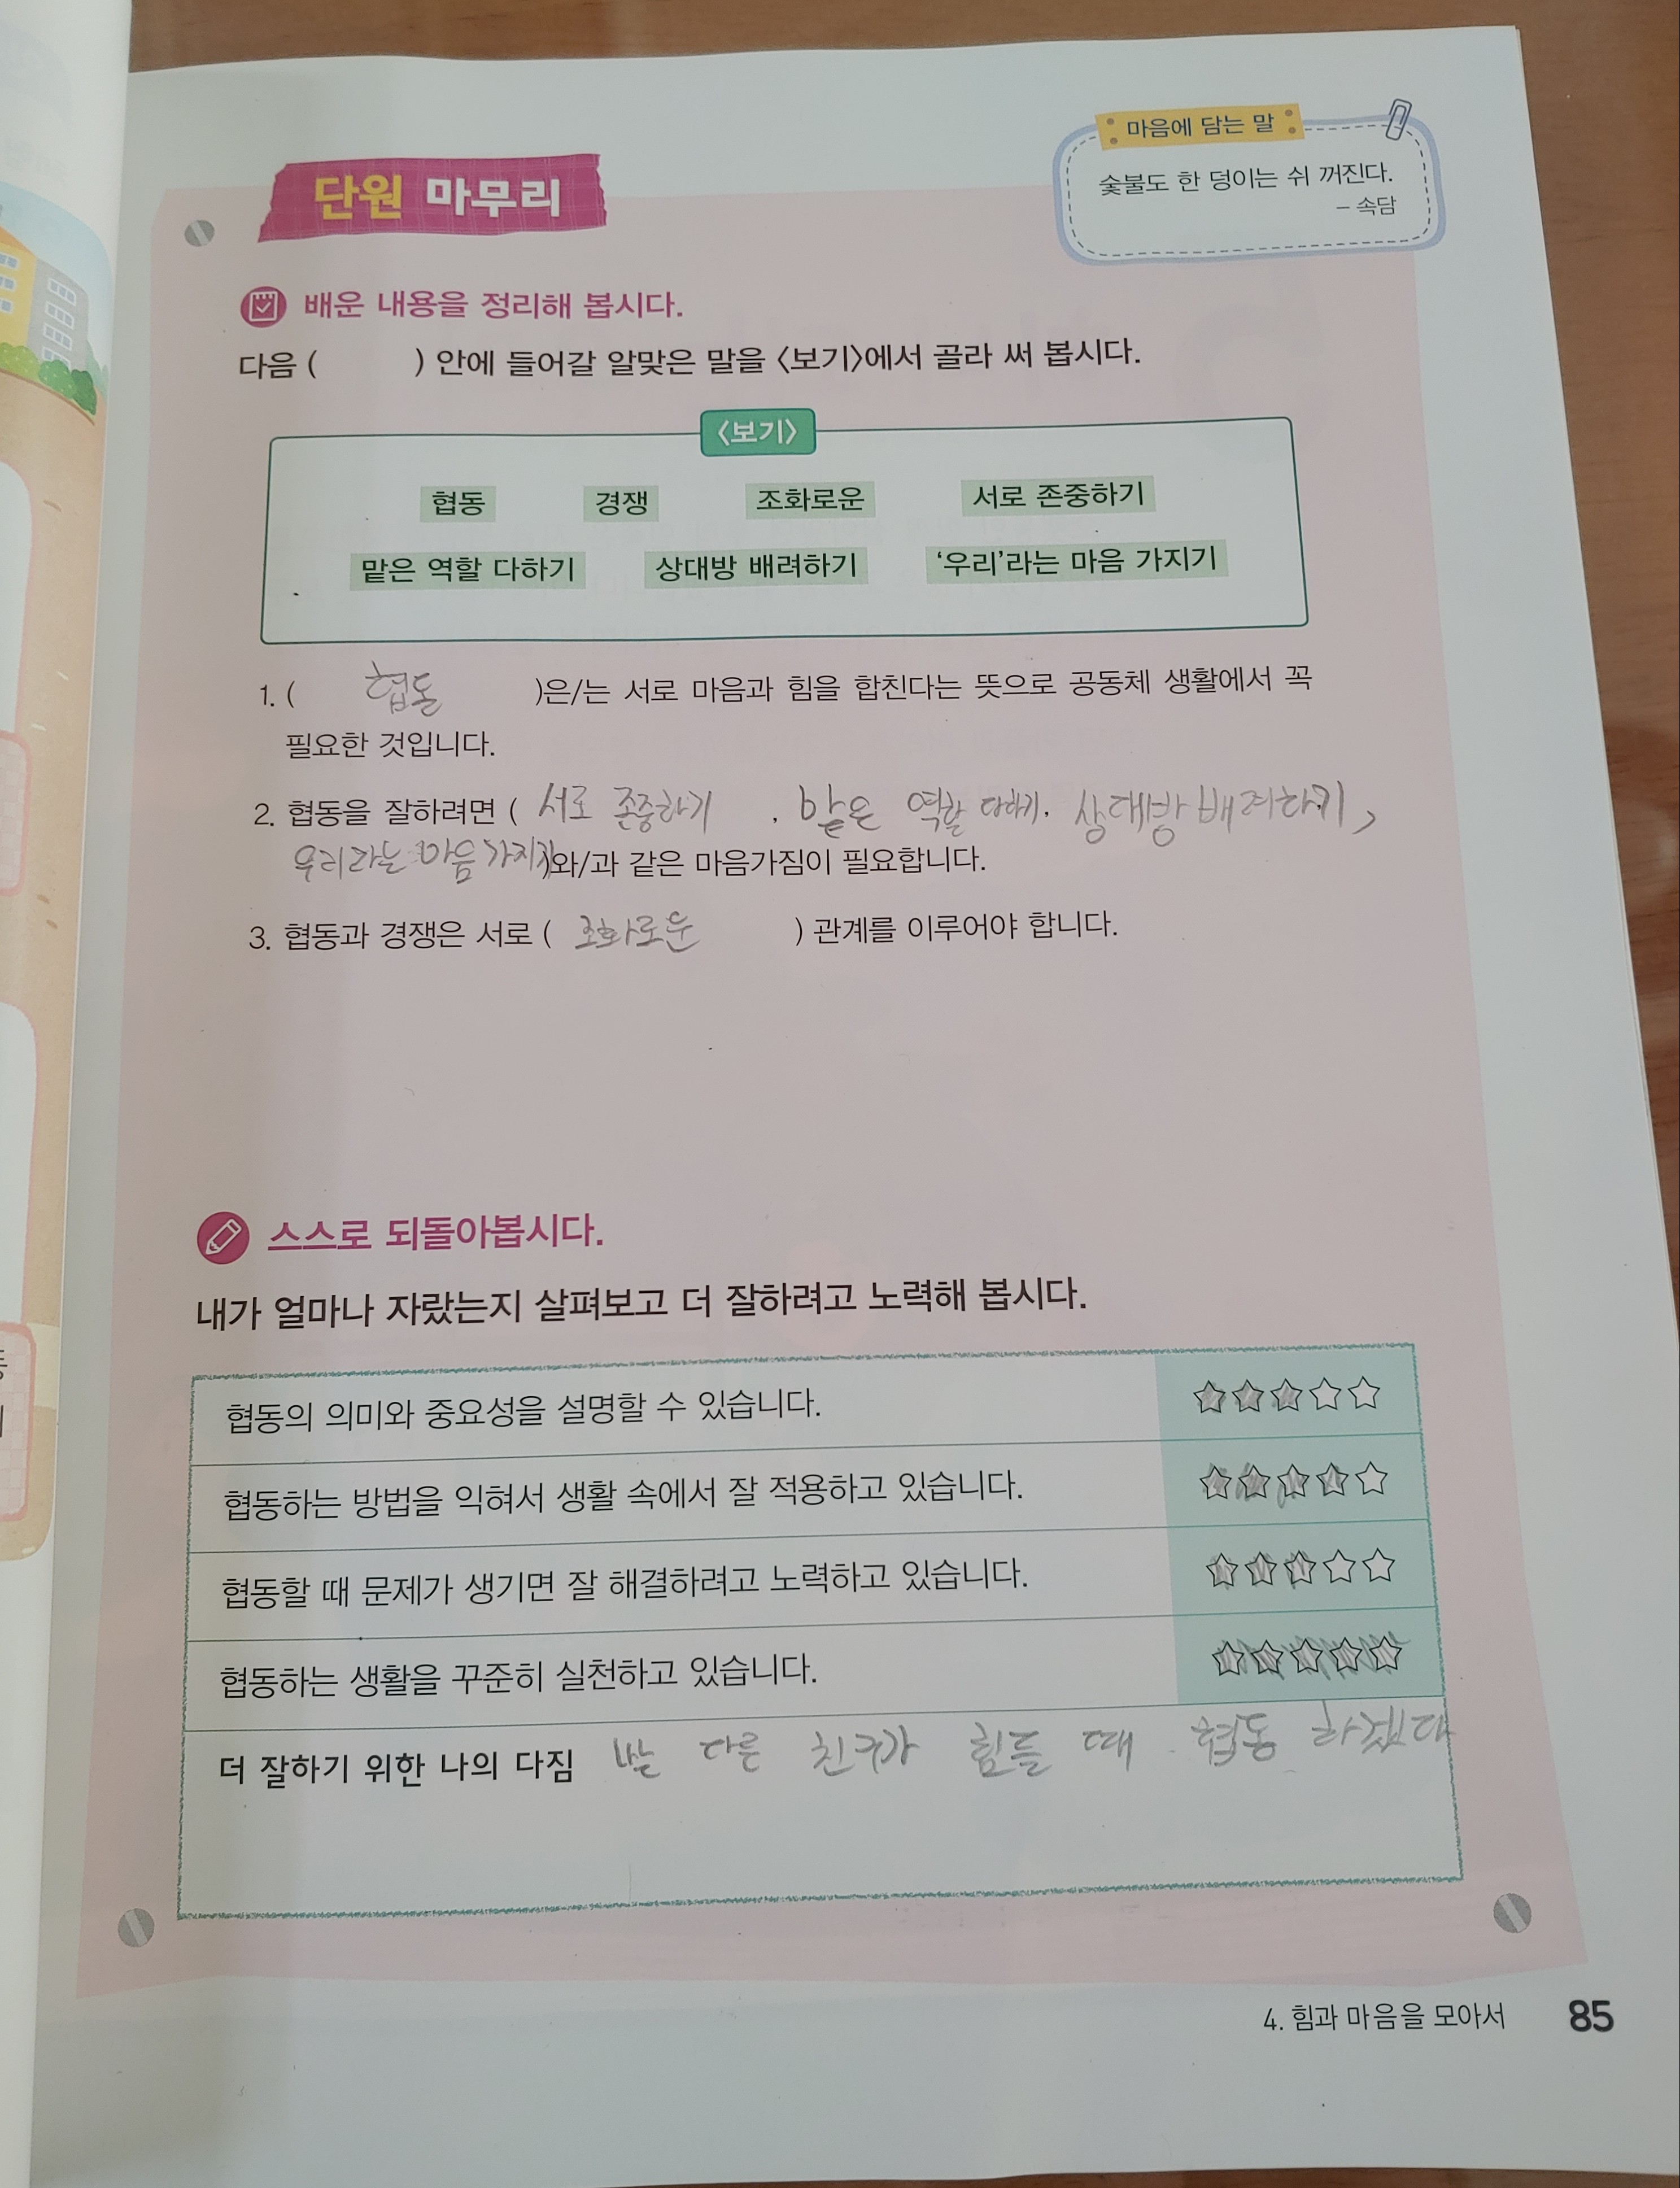 마음에 담는 말
숯불도 한 덩이는 쉬 꺼진다.
– 속담
단원 마무리
배운 내용을 정리해 봅시다.
다음 ( ) 안에 들어갈 알맞은 말을 〈보기〉에서 골라 써 봅시다.
〈보기〉
협동 경쟁 조화로운 서로 존중하기
맡은 역할 다하기 상대방 배려하기 ‘우리’라는 마음 가지기
1. ( 협돌 )은/는 서로 마음과 힘을 합친다는 뜻으로 공동체 생활에서 꼭
필요한 것입니다.
2. 협동을 잘하려면 ( 서로 존중하기 , 맡은 역할 다하기, 상대방 배려하기,
우리라는 마음 가지기)와/과 같은 마음가짐이 필요합니다.
3. 협동과 경쟁은 서로 ( 조화로운 ) 관계를 이루어야 합니다.
스스로 되돌아봅시다.
내가 얼마나 자랐는지 살펴보고 더 잘하려고 노력해 봅시다.
협동의 의미와 중요성을 설명할 수 있습니다.
협동하는 방법을 익혀서 생활 속에서 잘 적용하고 있습니다.
협동할 때 문제가 생기면 잘 해결하려고 노력하고 있습니다.
협동하는 생활을 꾸준히 실천하고 있습니다.
더 잘하기 위한 나의 다짐 다른 친구가 힘들 때 협동 하겠다
4. 힘과 마음을 모아서 85